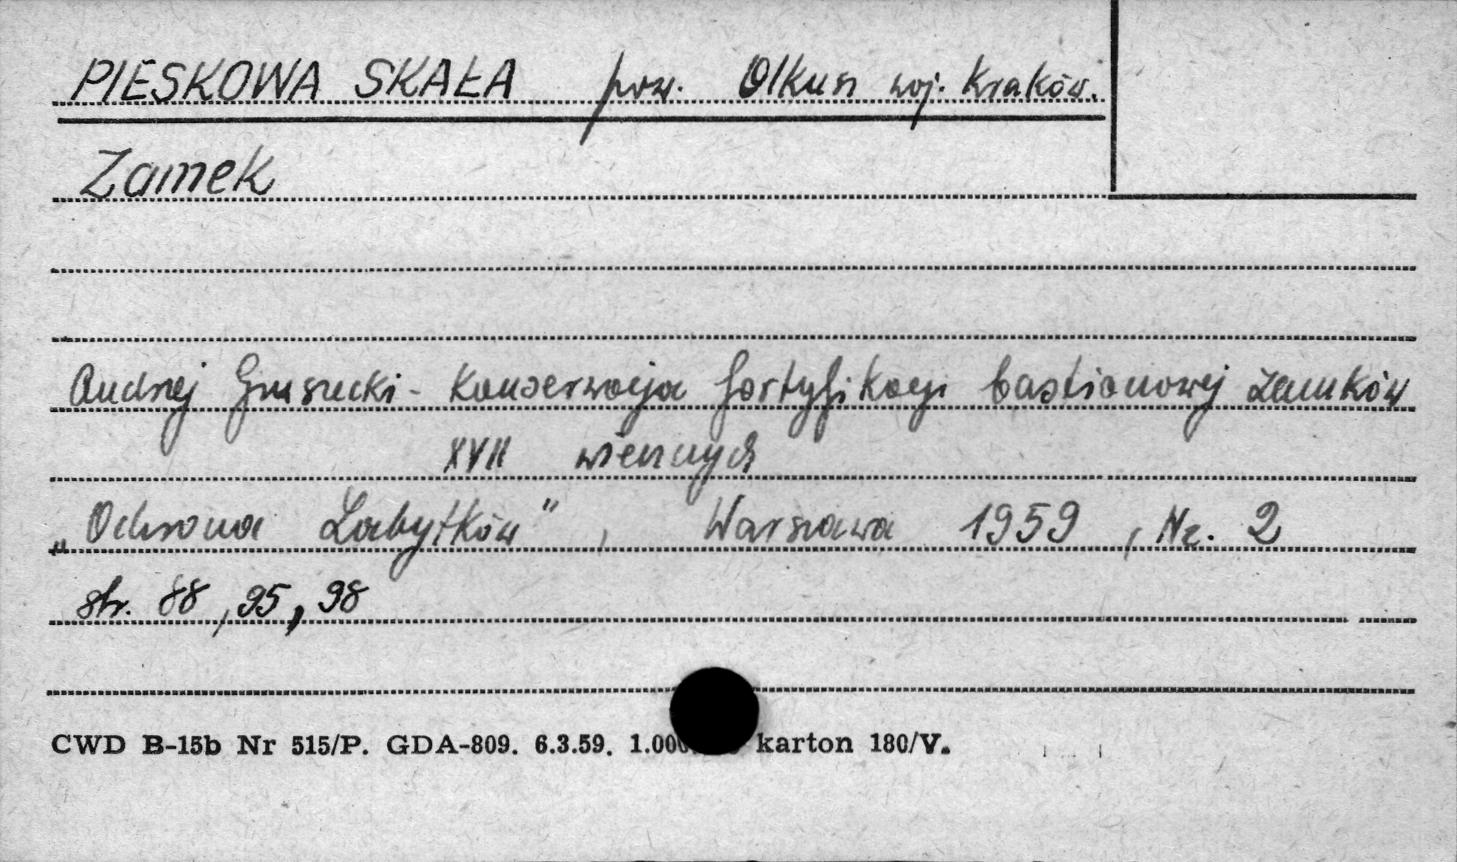 PIESKOWA SKAŁA pow. Olkusz woj. Kraków.
Zamek
Andrzej Gruszecki - Konserwacja fortyfikacji bastionowej zamków
XVII wiecznych
„Ochrona Zabytków", Warszawa 1959, Nr. 2
str. 88, 95, 98
CWD B-15b Nr 515/P. GDA-809. 6.3.59. karton 180/V.